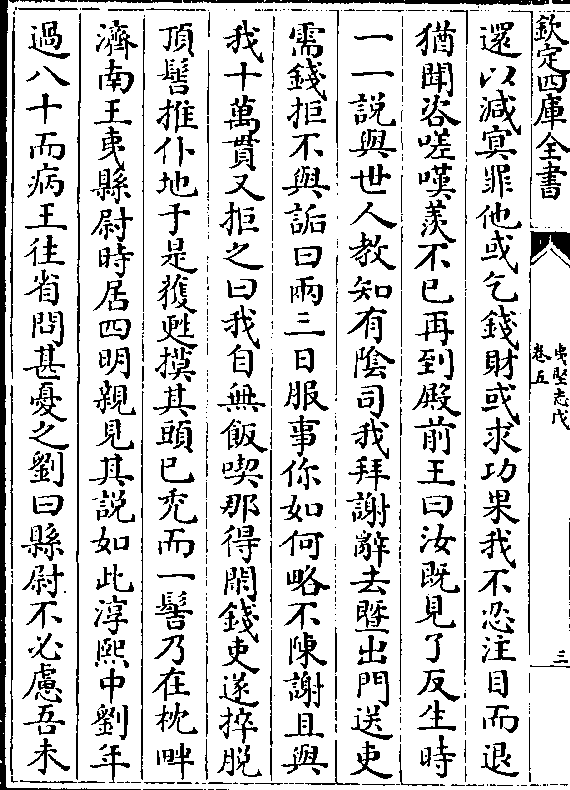 欽定四庫全書
夷堅志戊
卷五
三
還以減冥罪他或乞錢財或求功果我不忍注目而退
猶聞咨嗟嘆羨不已再到殿前王曰汝既見了反生時
一一説與世人教知有陰司我拜謝辭去暨出門送吏
需錢拒不與詬曰兩三日服事你如何略不陳謝且與
我十萬貫又拒之曰我自無飯喫那得閒錢吏遂捽脱
頂髻推仆地于是獲甦摸其頭已秃而一髻乃在枕畔
濟南王夷縣尉時居四明親見其説如此淳熙中劉年
過八十而病王往省問甚憂之劉曰縣尉不必慮吾未